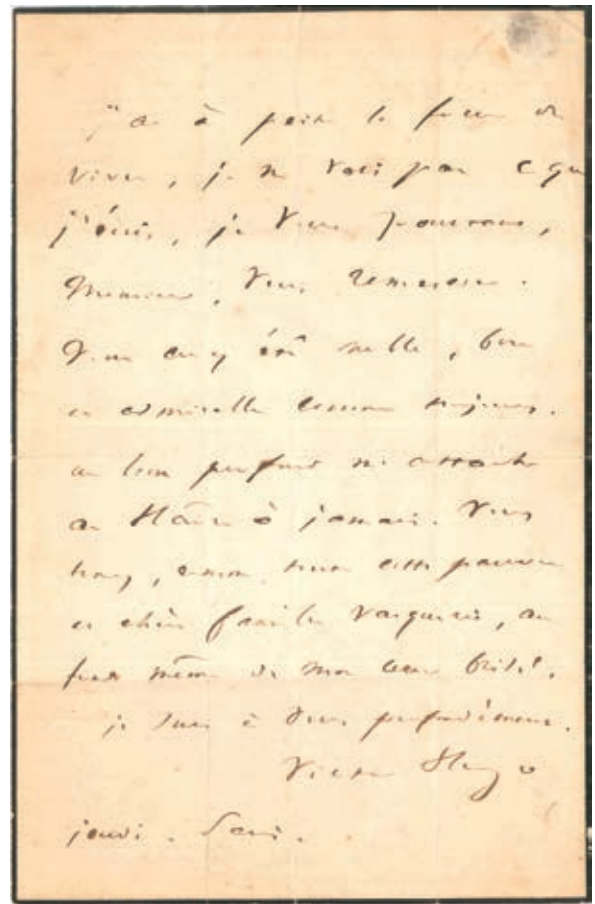 J'ai à peine la force de
vivre, je ne vois pas ce que
j'écris, je veux pourtant,
Monsieur, vous remercier.
Vous avez été noble, bon
et admirable comme toujours.
un lien profond m'attache
au Hâvre à jamais. Vous
êtes, comme cette pauvre
et chère famille Vacquerie, au
fond même de mon cœur brisé.
je suis à vous profondément.
Victor Hugo
jeudi. Paris.